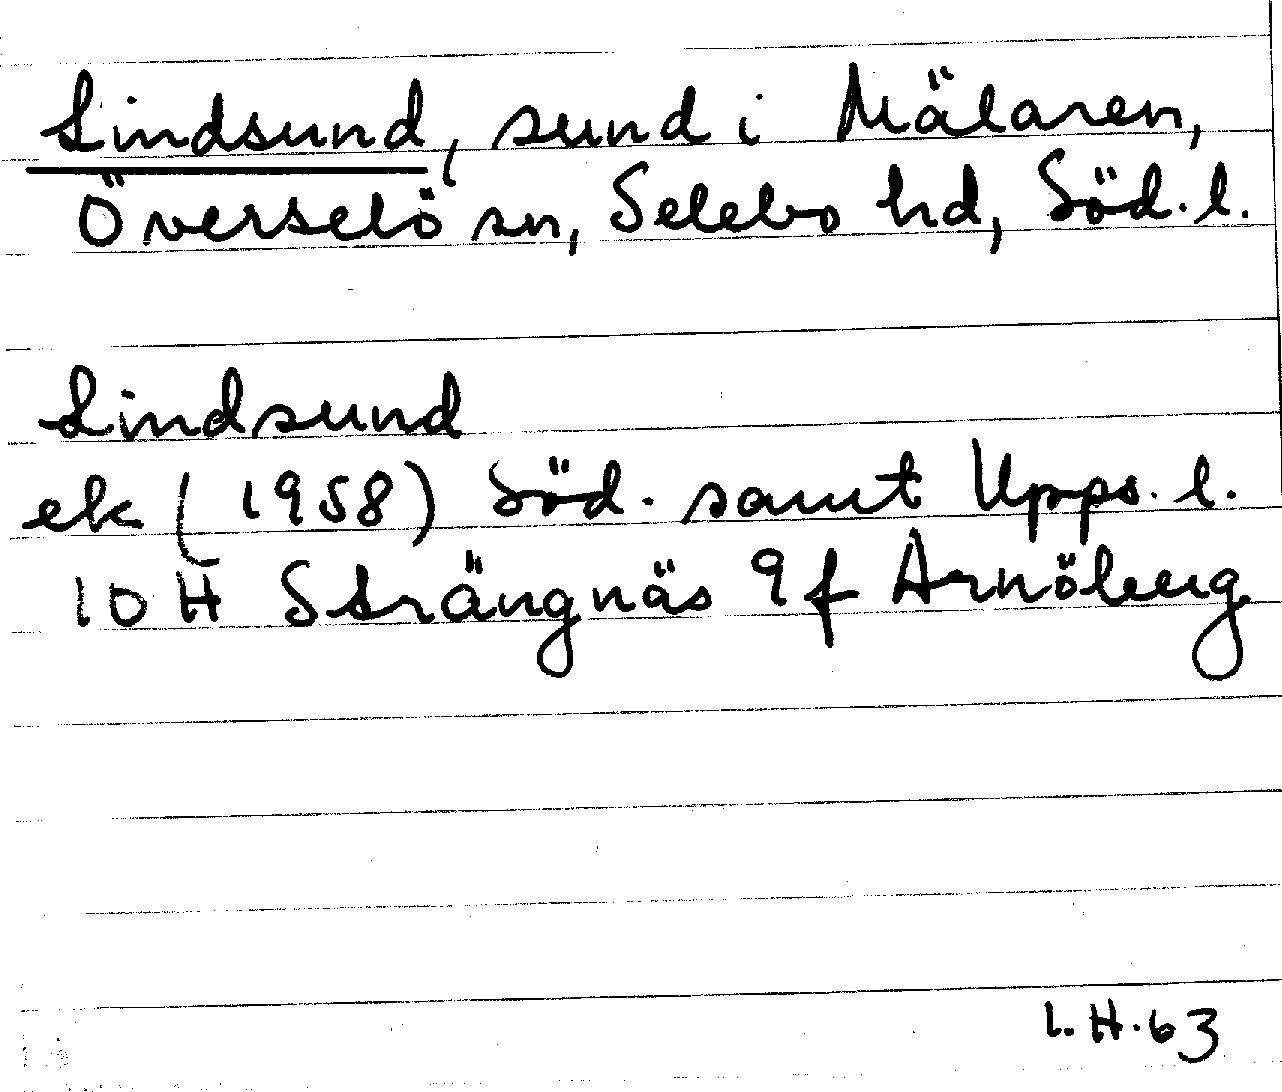 Lindsund, sund i Mälaren,
Överselö sn, Selebo hd, Söd. l.
Lindsund
ek (1958) Söd. samt Upps. l.
10 H Strängnäs 9 f Arnöberg
L. H. 63